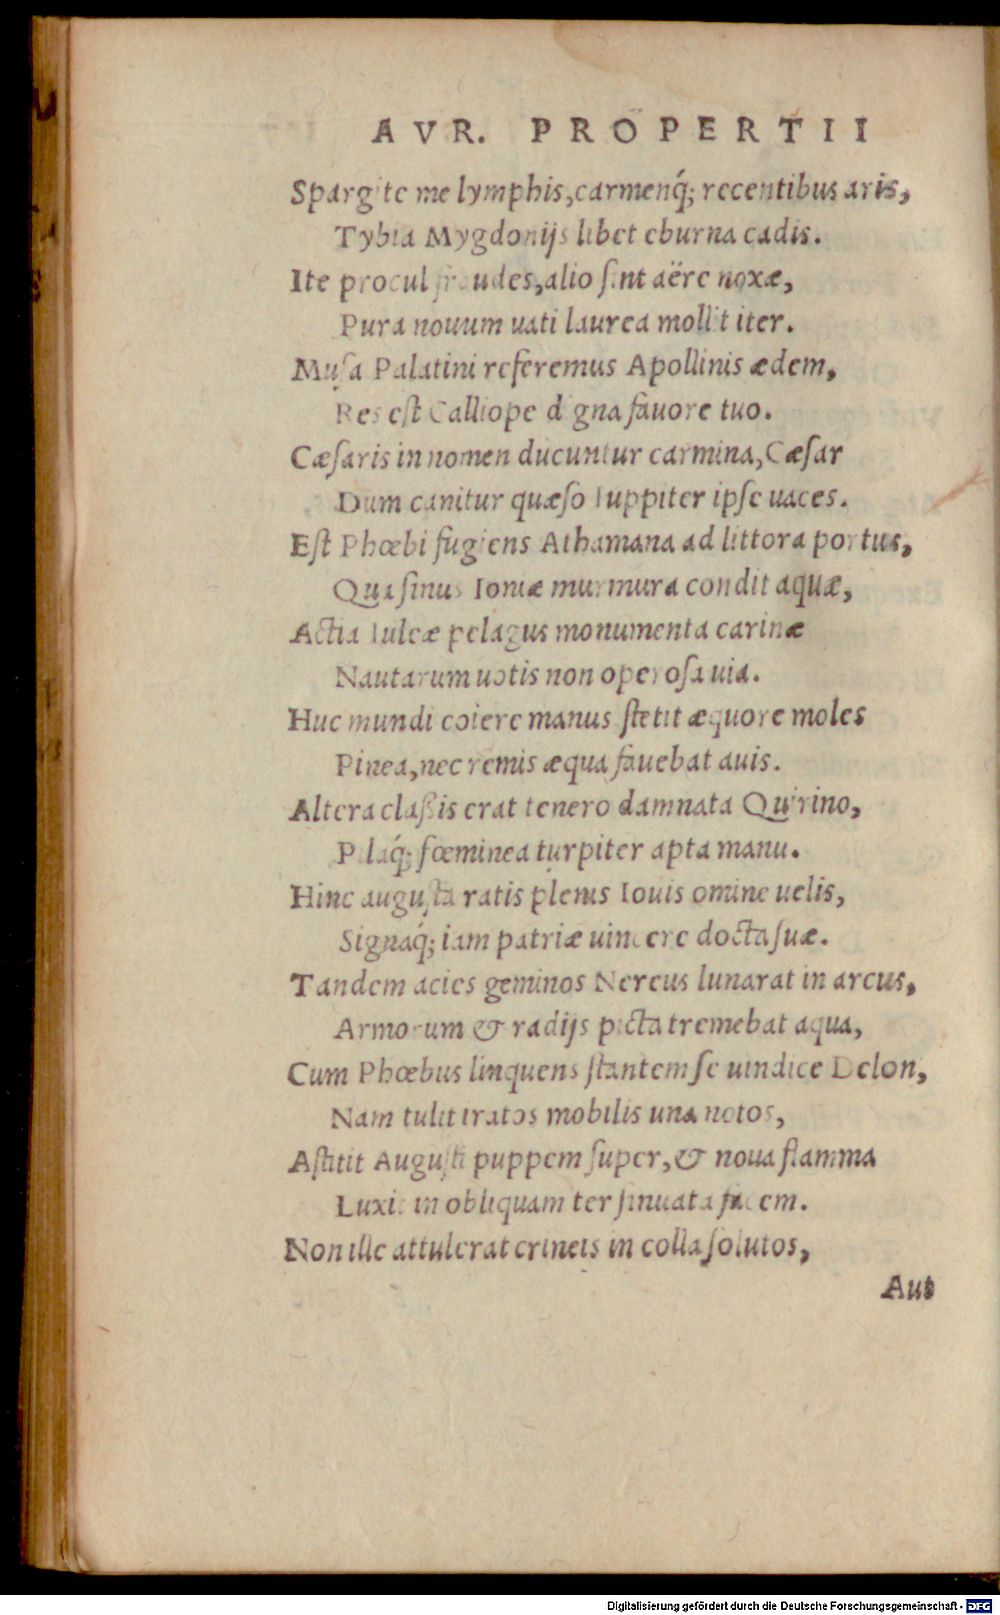 AVR. PROPERTII
Spargite me lymphis, carmenq́; recentibus aris,
Tybia Mygdonijs libet eburna cadis.
Ite procul fraudes, alio sint aëre noxæ,
Pura nouum uati laurea mollit iter.
Musa Palatini referemus Apollinis ædem,
Res est Calliope digna fauore tuo.
Cæsaris in nomen ducuntur carmina, Cæsar
Dum canitur quæso Iuppiter ipse uaces.
Est Phœbi fugiens Athamana ad littora portus,
Qua sinus Ioniæ murmura condit aquæ,
Actia Iuleæ pelagus monumenta carinæ
Nautarum uotis non operosa uia.
Huc mundi coiere manus stetit æquore moles
Pinea, nec remis æqua fauebat auis.
Altera classis erat tenero damnata Quirino,
Pilaq́; fœminea turpiter apta manu.
Hinc augusta ratis plenis Iouis omine uelis,
Signaq́; iam patriæ uincere docta suæ.
Tandem acies geminos Nereus lunarat in arcus,
Armorum & radijs picta tremebat aqua,
Cum Phœbus linquens stantem se uindice Delon,
Nam tulit iratos mobilis una notos,
Astitit Augusti puppem super, & noua flamma
Luxit in obliquam ter sinuata facem.
Non ille attulerat crineis in colla solutos,
Aut
Digitalisierung gefördert durch die Deutsche Forschungsgemeinschaft - DFG